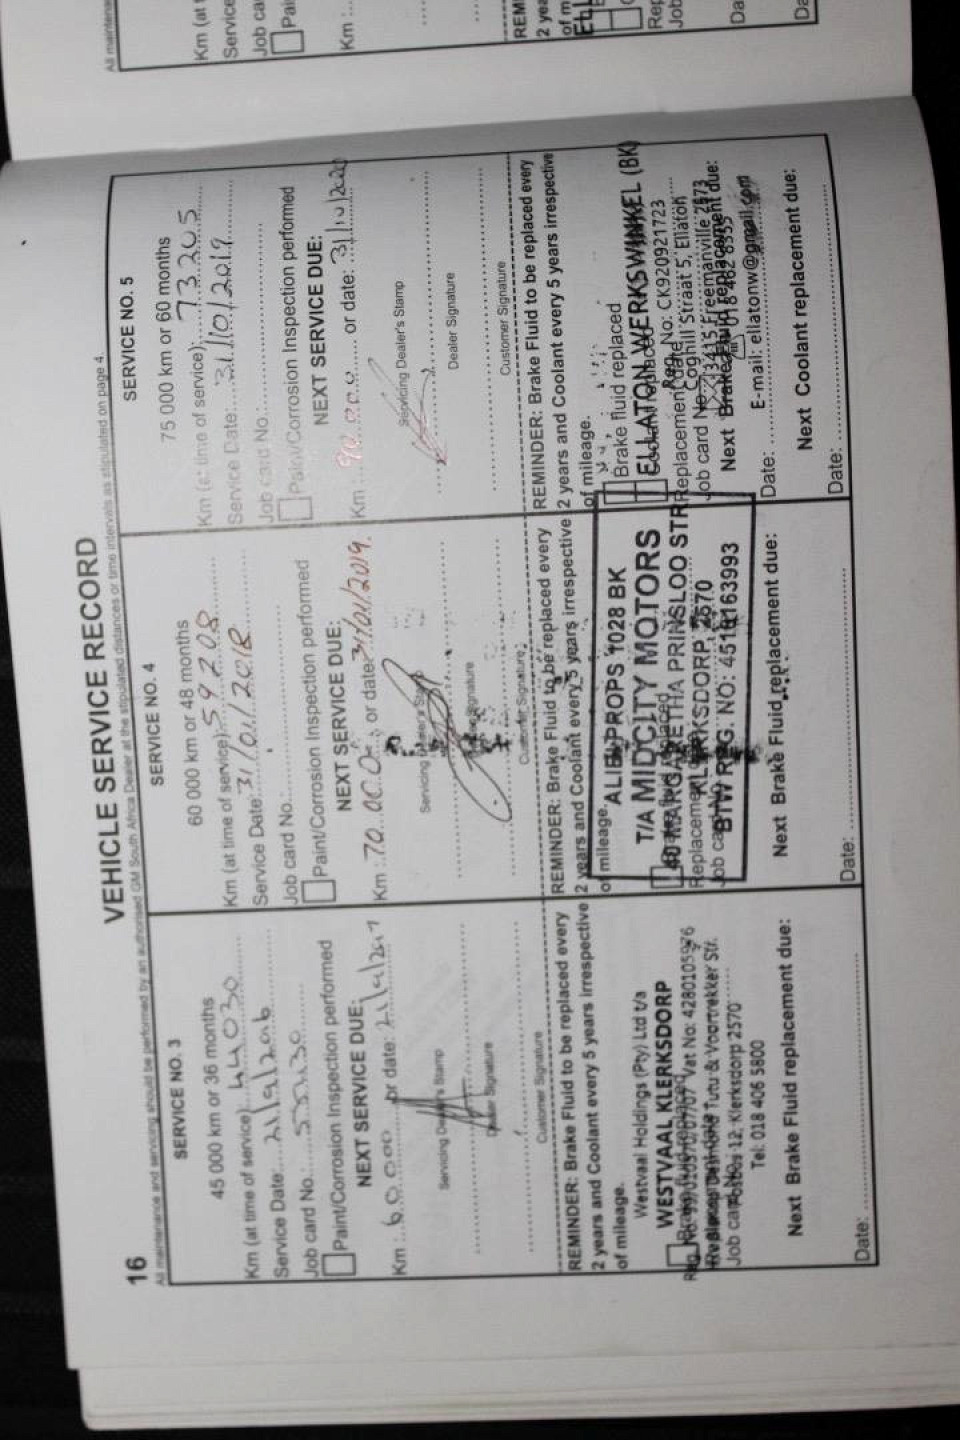 16
VEHICLE SERVICE RECORD
All maintenance and servicing should be performed by an authorised GM South Africa Dealer at the stipulated distances or time intervals as stipulated on page 4
SERVICE NO. 3
45 000 km or 36 months
Km (at time of service): 44030
Service Date:
Job card No.:
Paint/Corrosion Inspection performed
NEXT SERVICE DUE:
Km : 60000 or date:
Servicing Dealer's Stamp
Dealer Signature
Customer Signature
REMINDER: Brake Fluid to be replaced every
2 years and Coolant every 5 years irrespective
of mileage.
Westvaal Holdings (Pty) Ltd t/a
WESTVAAL KLERKSDORP
Vat No: 4280105976
Tutu & Voortrekker Str.
Job card No.
12, Klerksdorp 2570
Tel: 018 406 5800
Next Brake Fluid replacement due:
Date:
SERVICE NO. 4
60 000 km or 48 months
Km (at time of service): 59208
Service Date: 31/01/2018
Job card No.
Paint/Corrosion Inspection performed
NEXT SERVICE DUE:
Km : 70.000 or date: 31/01/2019.
Servicing Dealer's Stamp
Signature
Customer Signature
REMINDER: Brake Fluid to be replaced every
2 years and Coolant every 5 years irrespective
of mileage.
ALIEN PROPS 1028 BK
T/A MIDCITY MOTORS
40 MARGARETHA PRINSLOO STR
KLERKSDORP 2570
BTW REG. NO: 4510163993
Next Brake Fluid replacement due:
Date:
SERVICE NO. 5
75 000 km or 60 months
Km (at time of service): 73305
Service Date: 31/10/2019
Job card No.:
Paint/Corrosion Inspection performed
NEXT SERVICE DUE:
Km : 90.000 or date: 31/10/2020
Servicing Dealer's Stamp
Dealer Signature
Customer Signature
REMINDER: Brake Fluid to be replaced every
2 years and Coolant every 5 years irrespective
of mileage.
Brake fluid replaced
ELLATON WERKSWINKEL (BK)
Reg. No: CK920921723
Replacement date
Coghill Straat 5, Ellaton
Job card No.
3415, Freemanville 2573
Next Brake Fluid replacement due:
018 462 8555
E-mail: ellatonw@gmail.com
Date:
Next Coolant replacement due:
Date:
All maintenance
Km (at
Service
Job ca
Pai
Km :
REM
2 yea
of m
ELL
Rep
Job
Da
Da